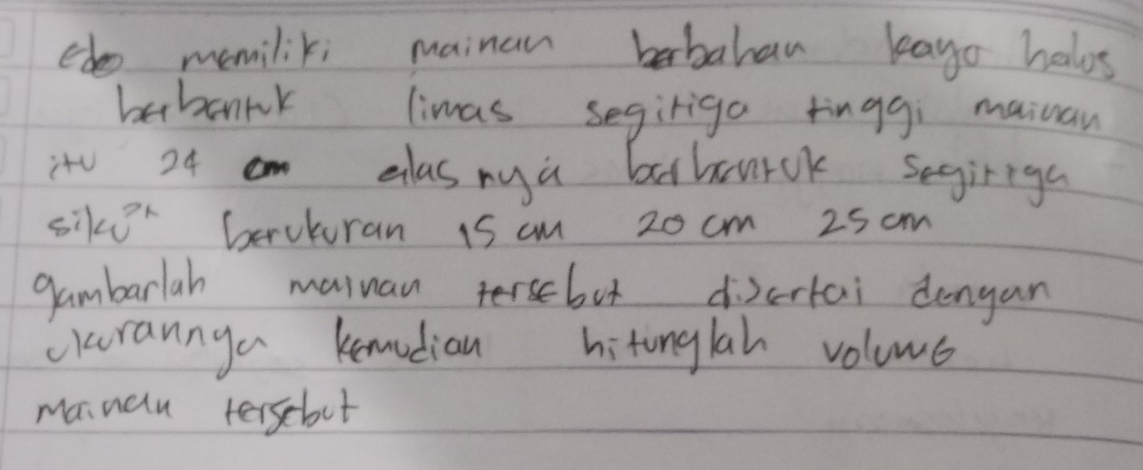 edo memiliki mainan berbahan kayo halus
berbentuk limas segitiga tinggi mainan
itu 24 cm alasnya berbentuk segitiga
siku²k berukuran 15 cm 20 cm 25 cm
gambarlah mainan tersebut disertai dengan
ukurannya kemudian hitunglah volume
mainan tersebut